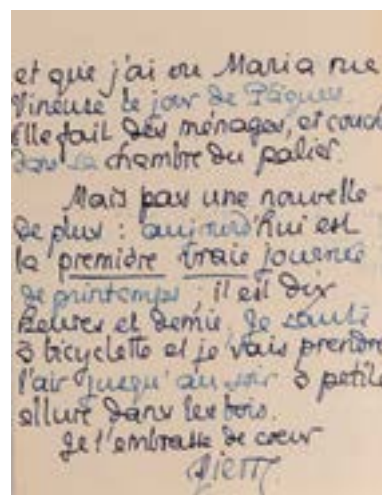 et que j'ai vu Maria rue
Vineuse le jour de Pâques.
Elle fait des ménages, et couche
dans sa chambre du palier.
Mais pas une nouvelle
de plus : aujourd'hui est
la première vraie journée
de printemps ; il est dix
heures et demie. Je saute
à bicyclette et je vais prendre
l'air jusqu'au soir à petite
allure dans les bois.
Je t'embrasse de coeur